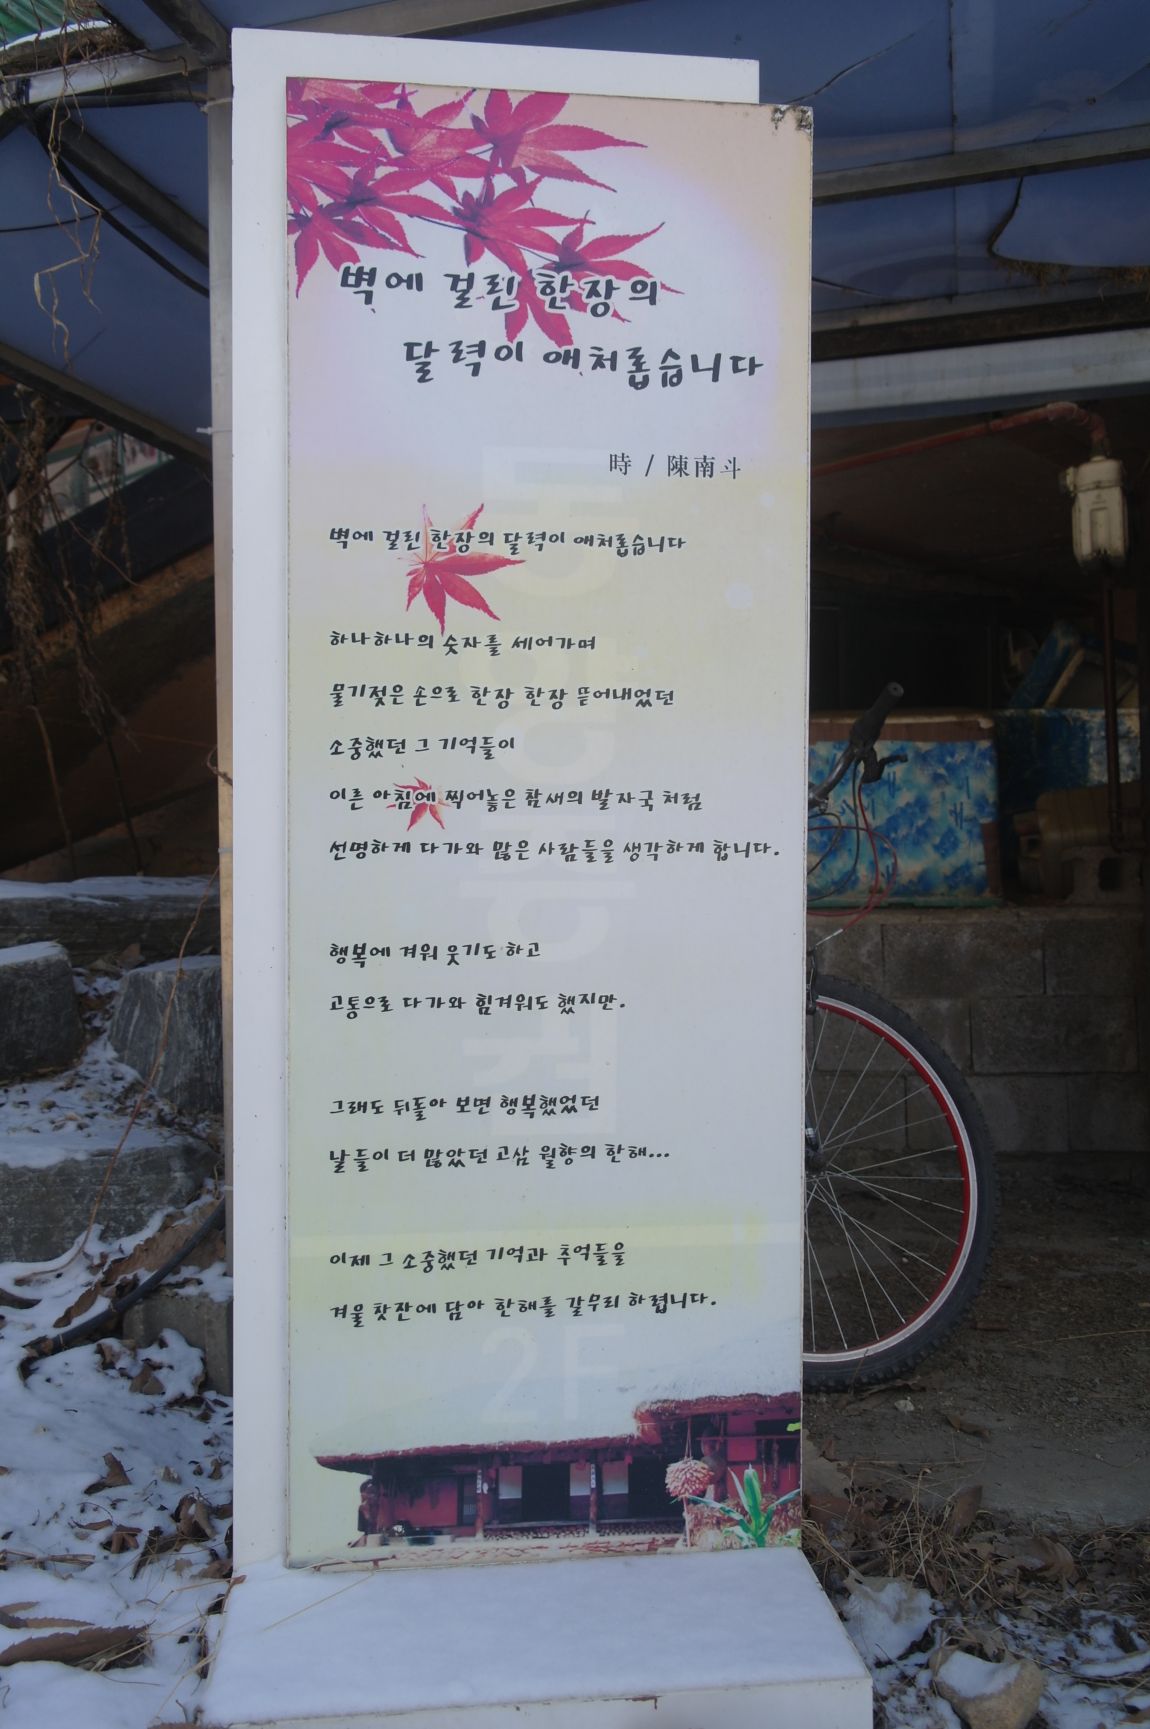 벽에 걸린 한장의
달력이 애처롭습니다
時 / 陳南斗
벽에 걸린 한장의 달력이 애처롭습니다
하나하나의 숫자를 세어가며
물기젖은 손으로 한장 한장 뜯어내었던
소중했던 그 기억들이
이른 아침에 찍어놓은 참새의 발자국처럼
선명하게 다가와 많은 사람들을 생각하게 합니다.
행복에 겨워 웃기도 하고
고통으로 다가와 힘겨워도 했지만.
그래도 뒤돌아 보면 행복했었던
날들이 더 많았던 고삼 월향의 한해...
이제 그 소중했던 기억과 추억들을
겨울 찻잔에 담아 한해를 갈무리 하렵니다.
2F